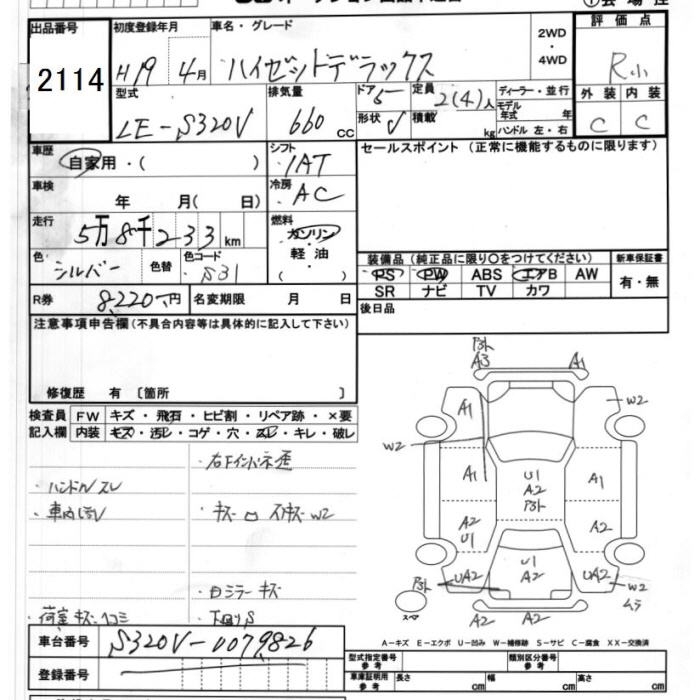 出品番号
2114
初度登録年月
H19 4月
車名・グレード
ハイゼットデラックス
2WD
・
4WD
評価点
R小
型式
LE-S320V
排気量
660 cc
ドア 5
形状 V
定員 2(4)人
積載 kg
ディーラー・並行
モデル年式 年
ハンドル 左・右
外装 内装
C C
車歴
自家用・( )
シフト
IAT
セールスポイント (正常に機能するものに限ります)
車検
年 月( 日)
冷房
AC
走行
5万8千233km
燃料
ガソリン
軽油
( )
色
シルバー
色替
色コード
S31
装備品 (純正品に限り○をつけてください)
新車保証書
PS PW ABS エアB AW
SR ナビ TV カワ
有・無
R券
8,220-円
名変期限 月 日
後日品
注意事項申告欄(不具合内容等は具体的に記入して下さい)
修復歴 有 〔箇所 〕
検査員記入欄
FW キズ・飛石・ヒビ割・リペア跡・×要
内装 キズ・汚レ・コゲ・穴・スレ・キレ・破レ
・ハンドルスレ
・車内汚レ
・荷室キズ・ヘコミ
・キズ
W2
・ロミラーキズ
・下回りS
A3 A1
A1 W2
W2
A1 U1 A2 A1
A2 U1 A2
U1 A2
UA2 UA2 W2
ムラ
スペア
A2 A2 A2
車台番号
S320V-0079826
登録番号
A-キズ E-エクボ U-凹み W-補修跡 S-サビ C-腐食 XX-交換済
型式指定番号 参考
類別区分番号 参考
車庫証明用 参考
長さ cm 幅 cm 高さ cm